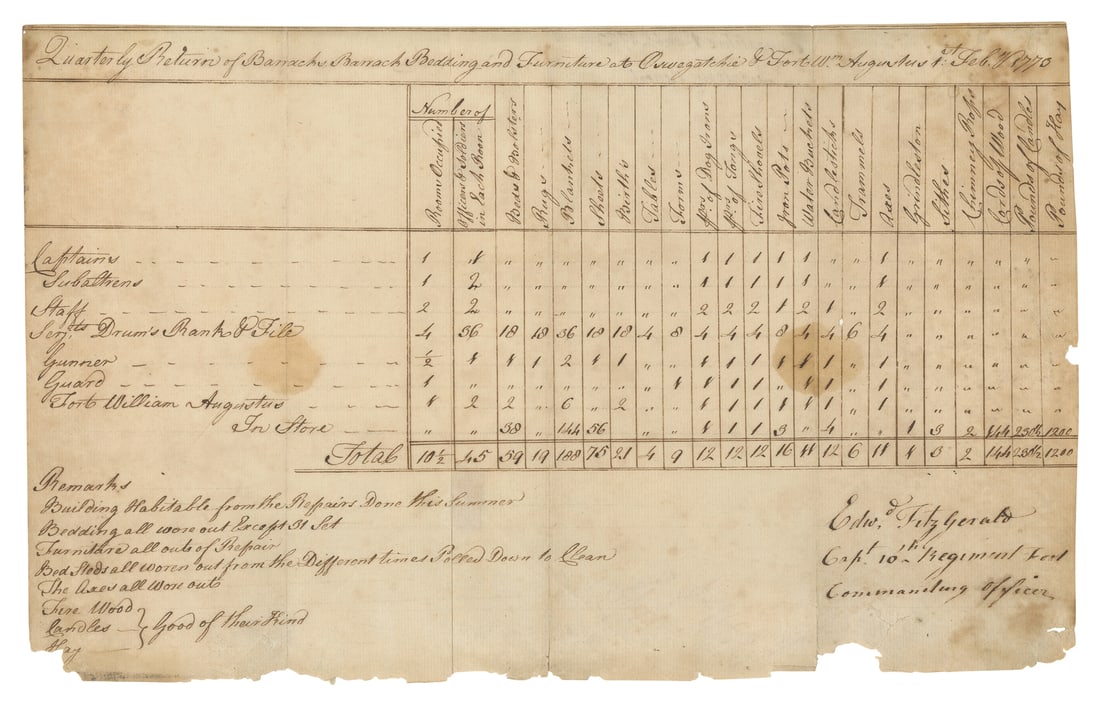 Quarterly Return of Barracks Barrack Bedding and Furniture at Oswegatchie & Fort Wm. Augustus 1st Feby 1770
Number of
Rooms Occupied
Officers & Soldiers in Each Room
Beds & Bolsters
Rugs
Blankets
Sheets
Births
Tables
Forms
prs of Dog Irons
prs of Tongs
Fire Shovels
Iron Pots
Water Buckets
Candlesticks
Trammels
Axes
Grindleston
Sithes
Chimney Rops
Cords of Wood
Pounds of Candles
Pounds of Hay
Captains 1 1 " " " " " " " 1 1 1 1 1 1 " 1 " " " " " "
Subaltrens 1 2 " " " " " " " 1 1 1 1 1 1 " 1 " " " " " "
Staff 2 2 " " " " " " " 2 2 2 1 2 1 " 2 " " " " " "
Serjts Drum's Rank & File 4 36 18 18 36 18 18 4 8 4 4 4 8 4 4 6 4 " " " " " "
Gunner ½ 1 1 1 2 1 1 " " 1 1 1 1 1 1 " 1 " " " " " "
Guard 1 " " " " " " " 1 1 1 1 " 1 1 " 1 " " " " " "
Fort William Augustus 1 2 2 " 6 " 2 " " 1 1 1 1 1 " " 1 " " " " " "
In Store " " 38 " 144 56 " " " 1 1 1 3 " 4 " " 1 3 2 144 1200
Total 10½ 45 59 19 188 75 21 4 9 12 12 12 16 11 12 6 11 1 3 2 144 1200
Remarks
Building Habitable from the Repairs Done this Summer
Bedding all wore out Except 31 Set
Furniture all out of Repair
Bed Steds all woren out from the Different times Polled Down to Clean
The Axes all Wore out
Fire Wood
Candles
Hay
Good of their Kind
Edwd FitzGerald
Capt 10th Regiment Foot
Commanding Officer